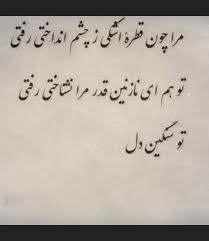 مرا چون قطرهٔ اشکی ز چشم انداختی رفتی
تو هم ای نازنین قدر مرا نشناختی رفتی
تو سنگین دل